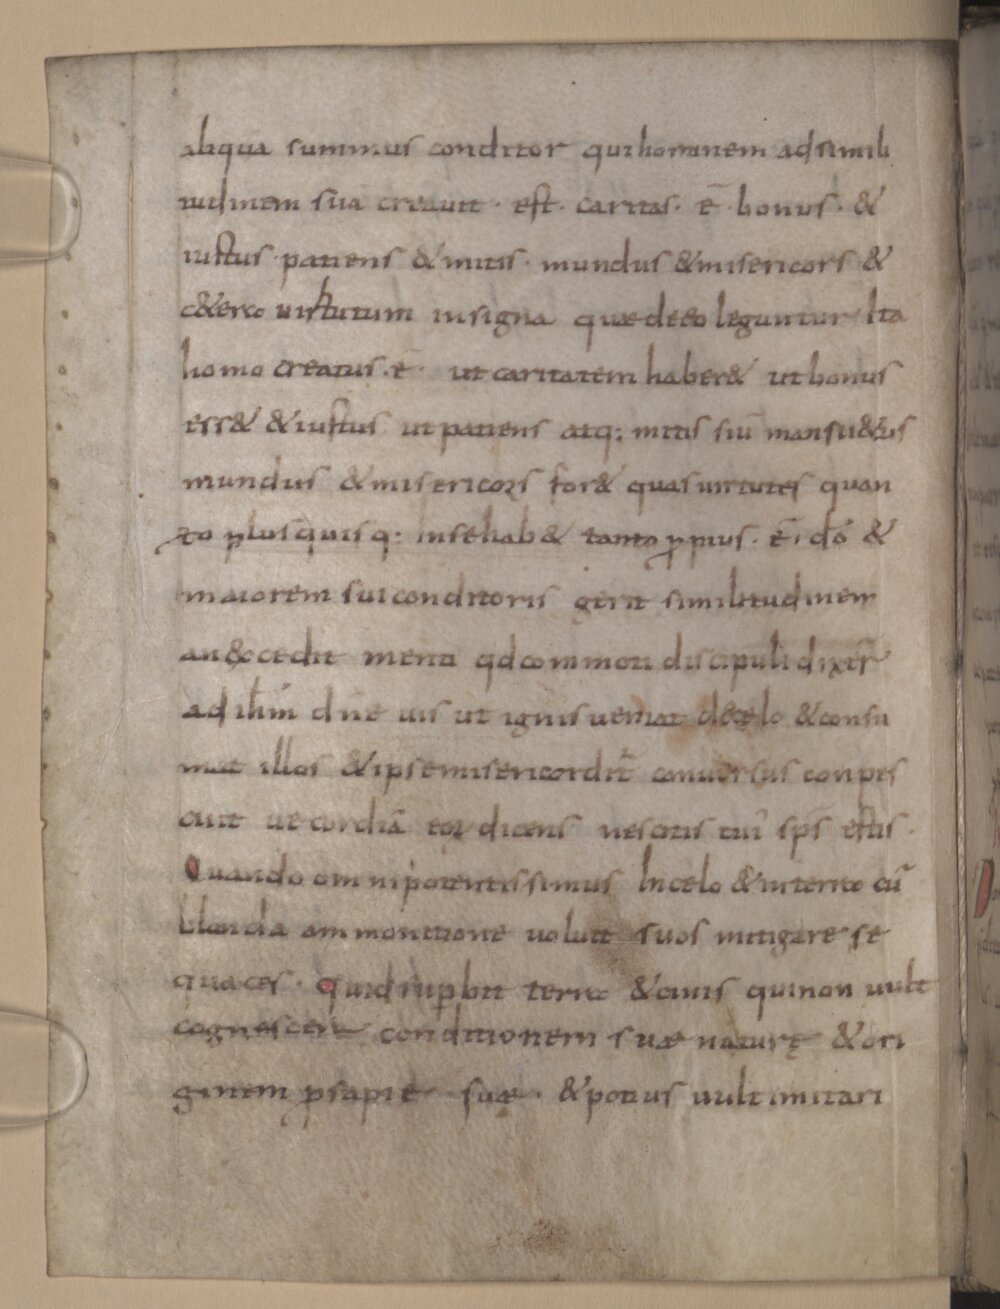 aliqua summus conditor qui hominem ad simili
tudinem sua creauit · est · caritas · ē · bonus · &
iustus · patiens & mitis · mundus & misericors &
c&ero uirtutum insigna quae de eo leguntur Ita
homo creatus · ē · ut caritatem haber& ut bonus
ess& & iustus ut patiens atq: mitis siū mansu&us
mundus & misericors for& quas uirtutes quan
to plus quisq: In se hab& tanto ꝓpius · ē · dō &
maiorem sui conditoris gerit similitudinem
an&cedit menti qd commoti discipuli dixer̄
ad ih̄m dn̄e uis ut ignis ueniat de celo & consu
mat illos & ipse misericordit̄ conuersus conpes
cuit uecordiā eoꝝ dicens nescitis cuī sps̄ estis ·
Quando omnipotentissimus In celo & in terrae cū
blanda ammonitione uoluit suos mitigare se
quaces · quid sup̱bit terra & cinis qui non uult
cognoscere conditionem suae naturę & ori
ginem ꝓsapie suae · & potius uult imitari